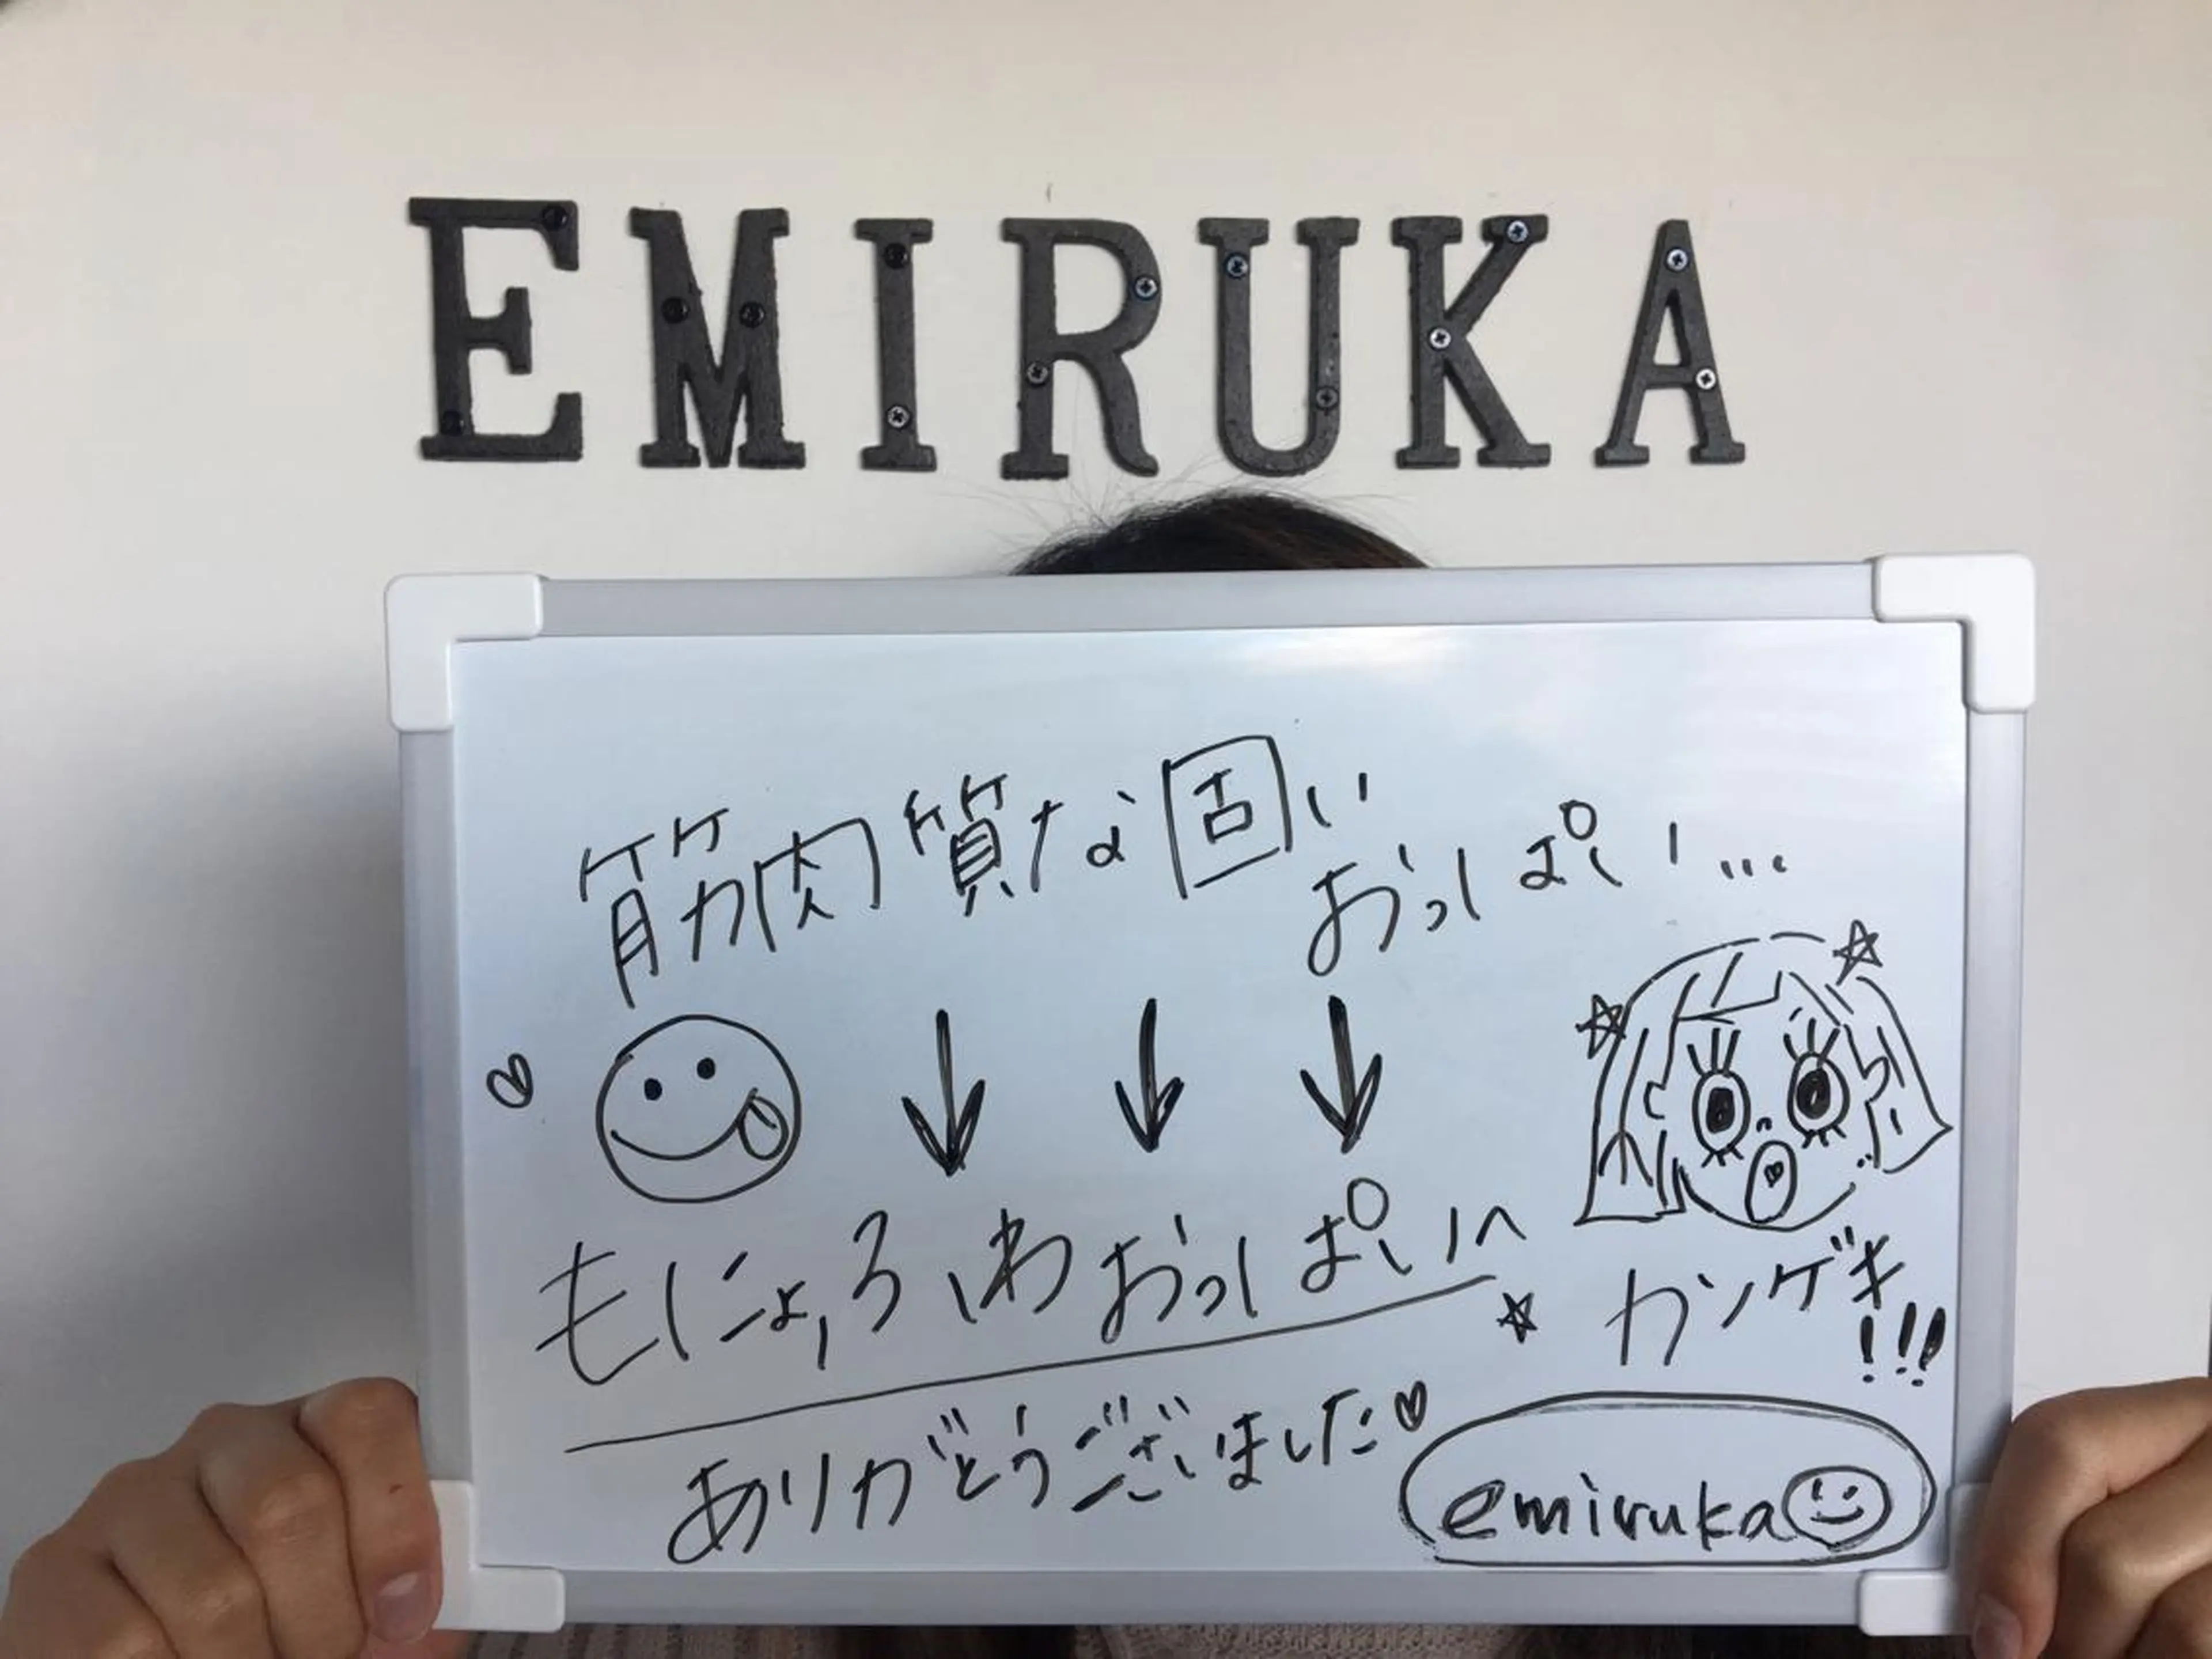 EMIRUKA
筋肉質な固い
おっぱい...
もにょふわおっぱいへ
カンゲキ!!!
ありがとうございました♡
emiruka